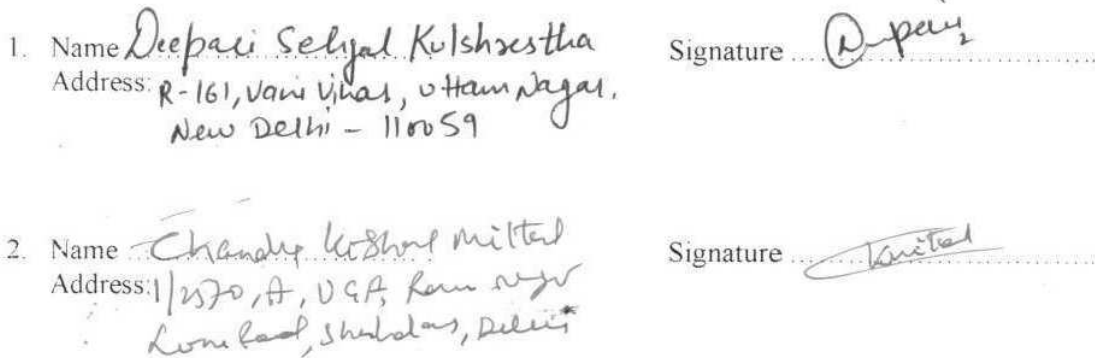 1. Name Deepali Sehgal Kulshrestha Signature
Address: R-161, Vani Vihar, Uttam Nagar,
New Delhi - 110059
2. Name Chandra Kishore Mittal Signature
Address: 1/2570, A, Ram Nagar
Loni Road, Shahdara, Delhi